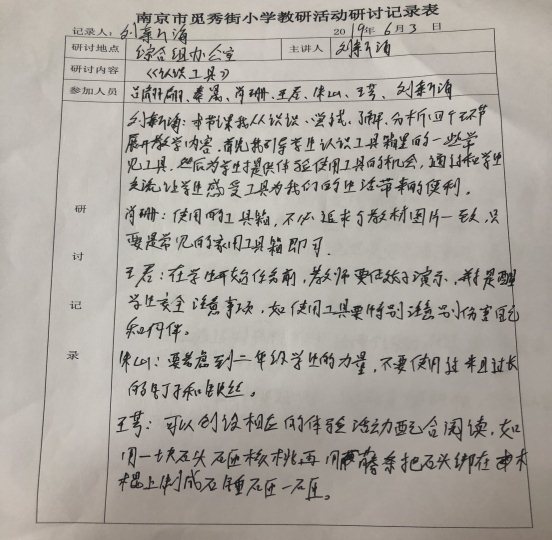 南京市觅秀街小学教研活动研讨记录表
记录人：刘新海 2019年6月3日
研讨地点 综合组办公室 主讲人 刘新海
研讨内容 《认识工具》
参加人员 秦岚、肖珊、王君、朱山、王萼、刘新海
研讨记录
刘新海：本节课我从说说、尝试、了解、分析四个环节
展开教学内容。首先我引导学生认识工具箱里的一些常
见工具，然后为学生提供体验使用工具的机会，通过和学生
交流让学生感受工具为我们的生活带来的便利。
肖珊：使用的工具箱，不必追求与教材图片一致，只
要是常见的家用工具箱即可。
王君：在学生开始任务前，教师要任务演示，并提醒
学生安全注意事项，如使用工具要特别注意别伤害自己
和同伴。
朱山：要考虑到二年级学生的力量，不要使用过粗且过长
的钉子和铁丝。
王萼：可以创设相应的体验活动配合阅读，如
用一块石头砸核桃，再用藤条把石头绑在木
棍上制成石锤砸一砸。